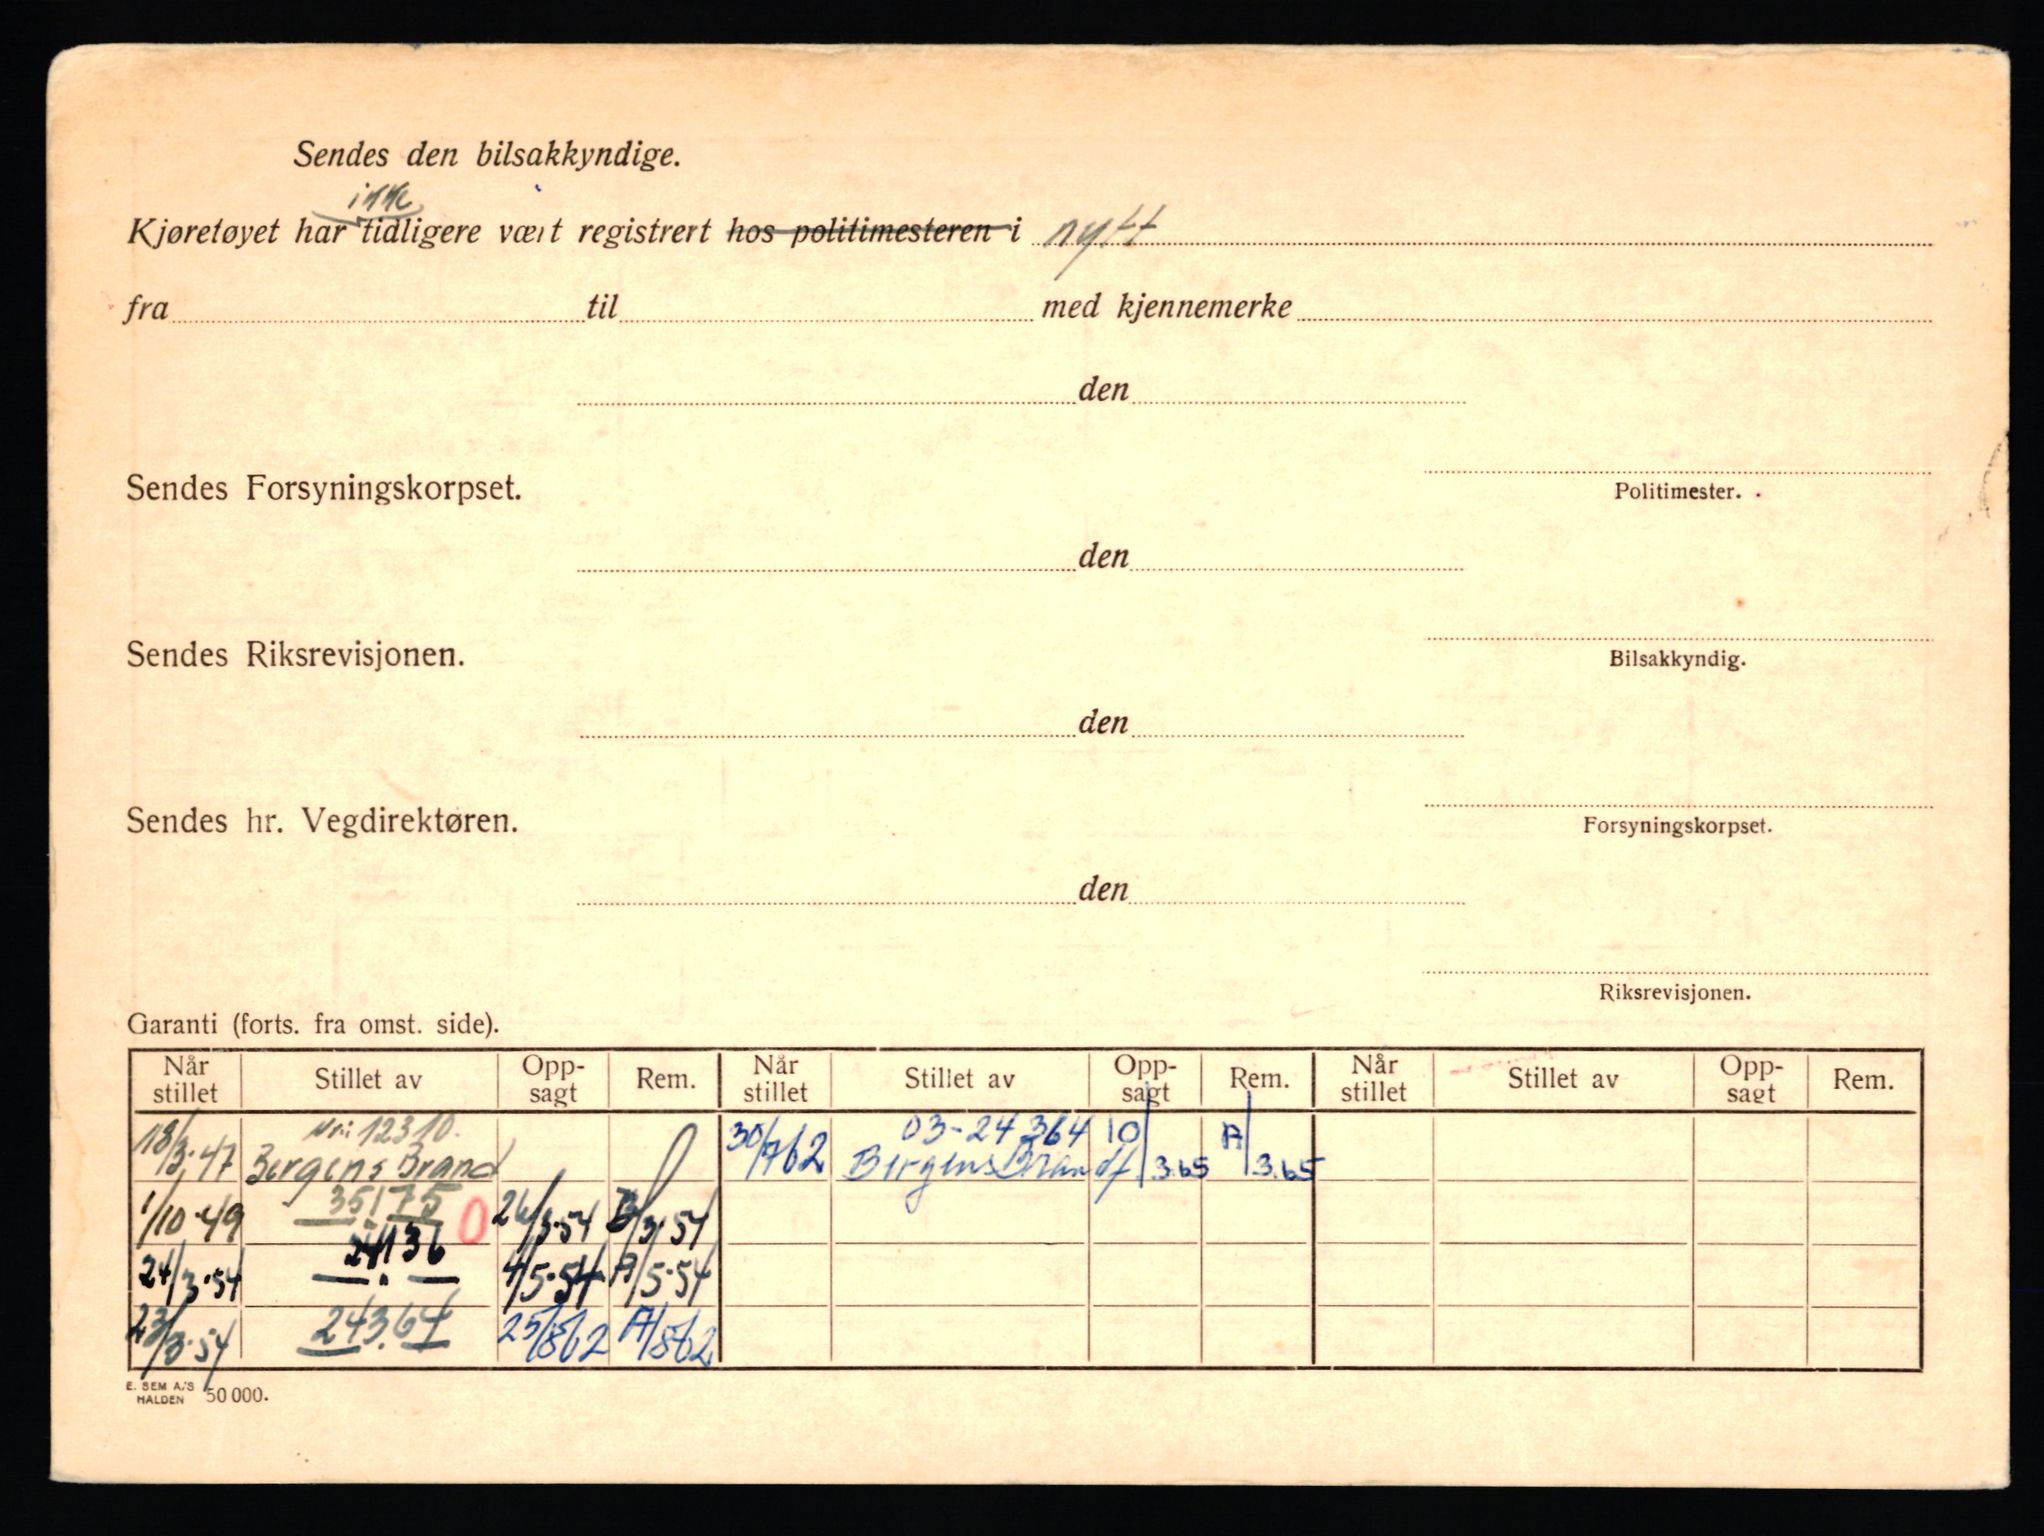 Sendes den bilsakkyndige.
ikke
Kjøretøyet har tidligere vært registrert hos politimesteren i nytt
fra til med kjennemerke
den
Sendes Forsyningskorpset.
Politimester.
den
Sendes Riksrevisjonen.
Bilsakkyndig.
den
Sendes hr. Vegdirektøren.
Forsyningskorpset.
den
Riksrevisjonen.
Garanti (forts. fra omst. side).
Når stillet Stillet av Opp-sagt Rem. Når stillet Stillet av Opp-sagt Rem. Når stillet Stillet av Opp-sagt Rem.
Nr: 12310. 03-24364
18/3.47 Bergens Brand 30/762 Bergens Brandf 10/3.65 A/3.65
1/10.49 35175 0 26/3.54 B/3.54
24/3.54 24136 4/5.54 A/5.54
23/3.54 24364 25/862 A/862
E. SEM A/S
HALDEN 50 000.